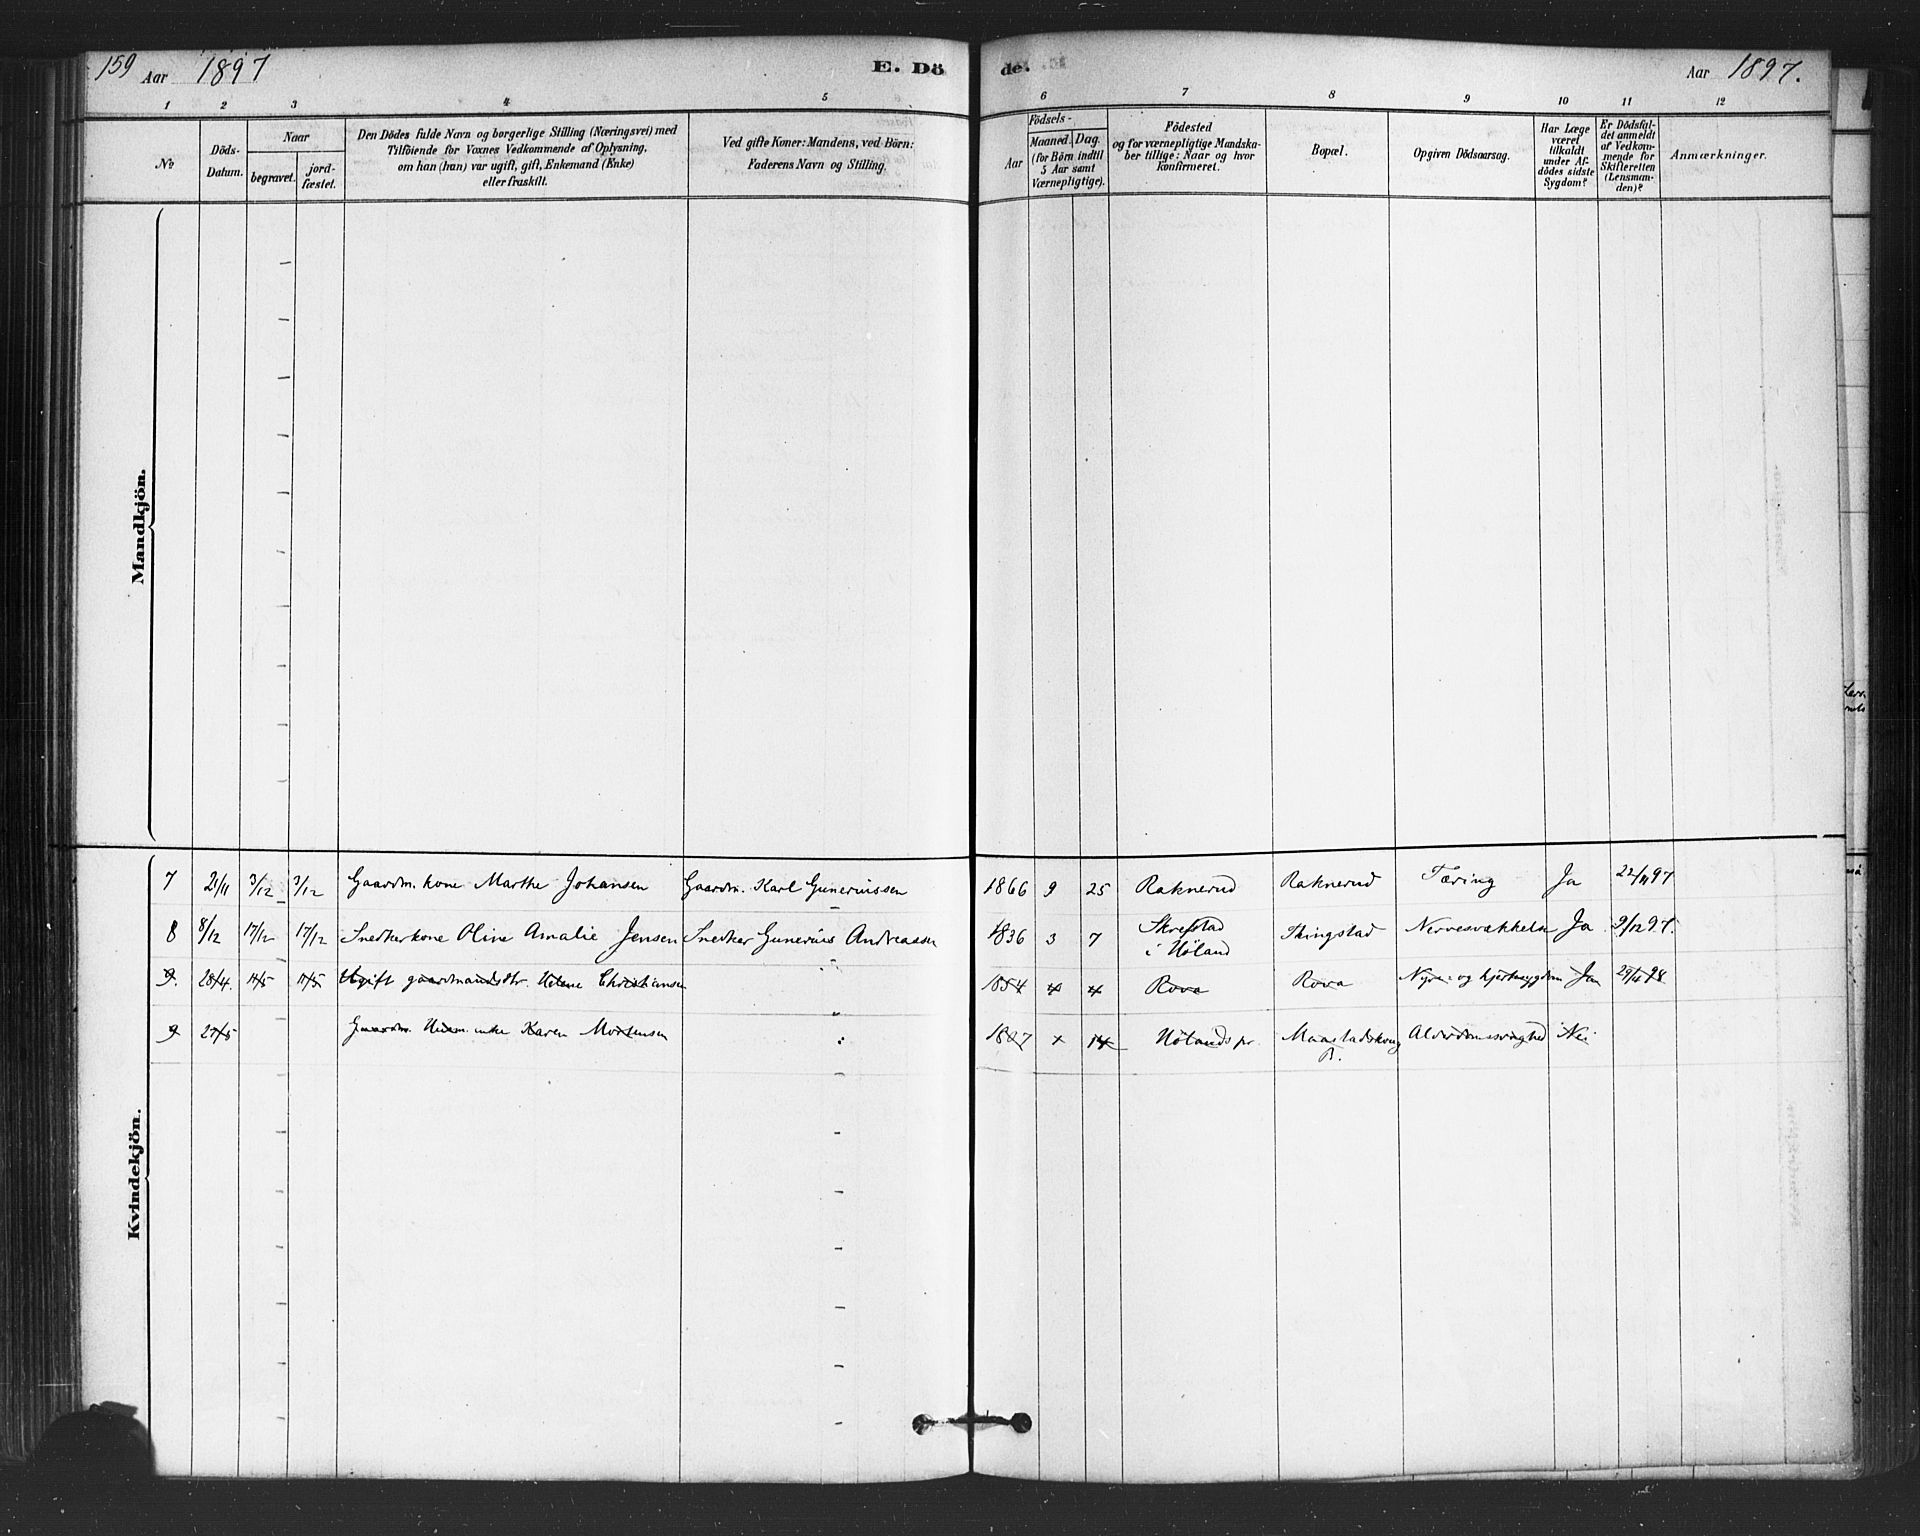 159 Aar 1897 E. Dö de. Aar 1897.
1 2 3 4 5 6 7 8 9 10 11 12
No Döds-Datum. Naar begravet. jord-fæstet. Den Dödes fulde Navn og borgerlige Stilling (Næringsvei) med Tilföiende for Voxnes Vedkommende af Oplysning, om han (hun) var ugift, gift, Enkemand (Enke) eller fraskilt. Ved gifte Koner: Mandens, ved Börn: Faderens Navn og Stilling. Födsels- Aar Maaned. Dag. (for Börn indtil 5 Aar samt Værnepligtige). Födested og for værnepligtige Mandskaber tillige: Naar og hvor konfirmeret. Bopæl. Opgiven Dödsaarsag. Har Læge været tilkaldt under Afdödes sidste Sygdom? Er Dödsfaldet anmeldt af Vedkommende for Skifteretten (Lensmanden)? Anmærkninger.
Mandkjön.
Kvindekjön.
7 21/11 3/12 3/12 Gaardm. kone Marthe Johansen Gaardm. Karl Guneriussen 1866 9 25 Raknerud Raknerud Tæring Ja 22/11 97
8 8/12 17/12 17/12 Snedkerkone Oline Amalie Jensen Snedker Gunerius Andreassen 1836 3 7 Skrefstad i Høland Thingstad Nervesvækkelse Ja 9/12 97.
9. 28/4. 11/5 11/5 Ugift gaardmandsdtr. Helene Christiansen 1854 Rova Rova Nyre- og hjertesygdom Ja 98
9 27/5 Gaardm. enke Karen Mortensen 1807 14 Hølands pr. Alderdomssvaghed Nei